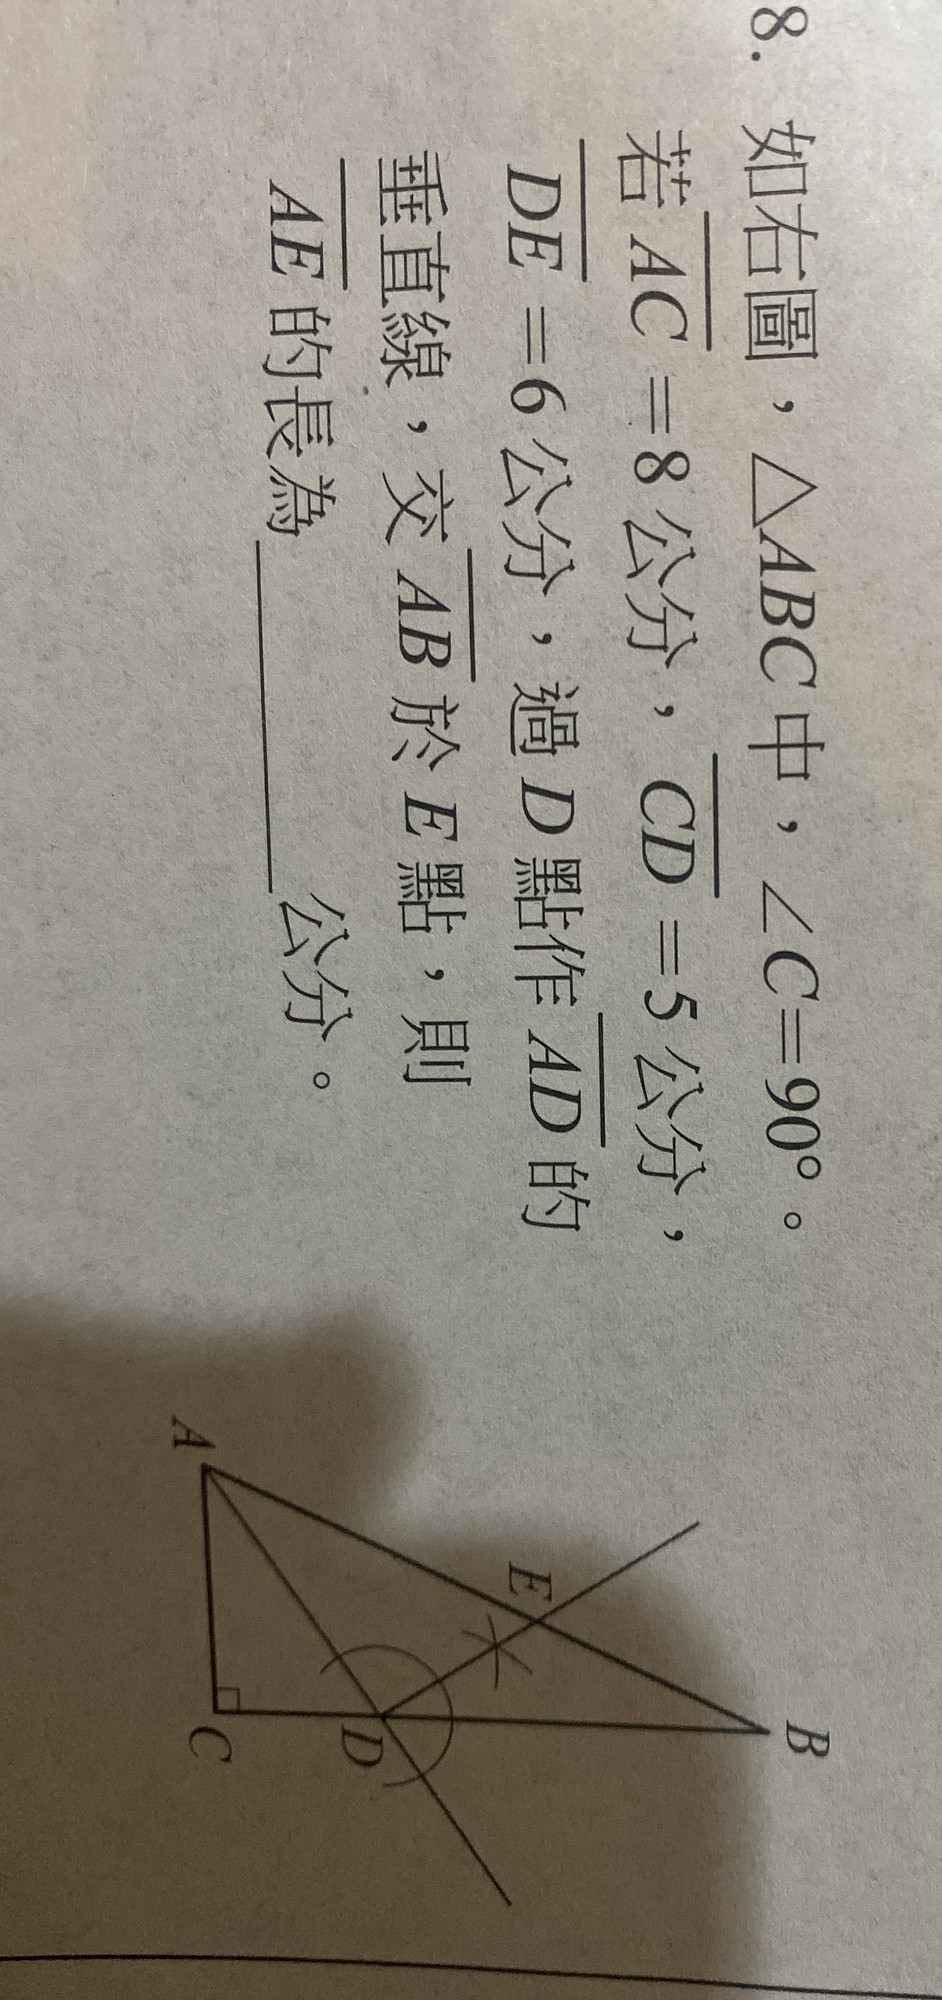 8. 如右圖，△ABC中，∠C=90°。
若 AC =8 公分，CD =5 公分，
DE =6 公分，過 D 點作 AD 的
垂直線，交 AB 於 E 點，則
AE 的長為________公分。
B
E
A
D
C